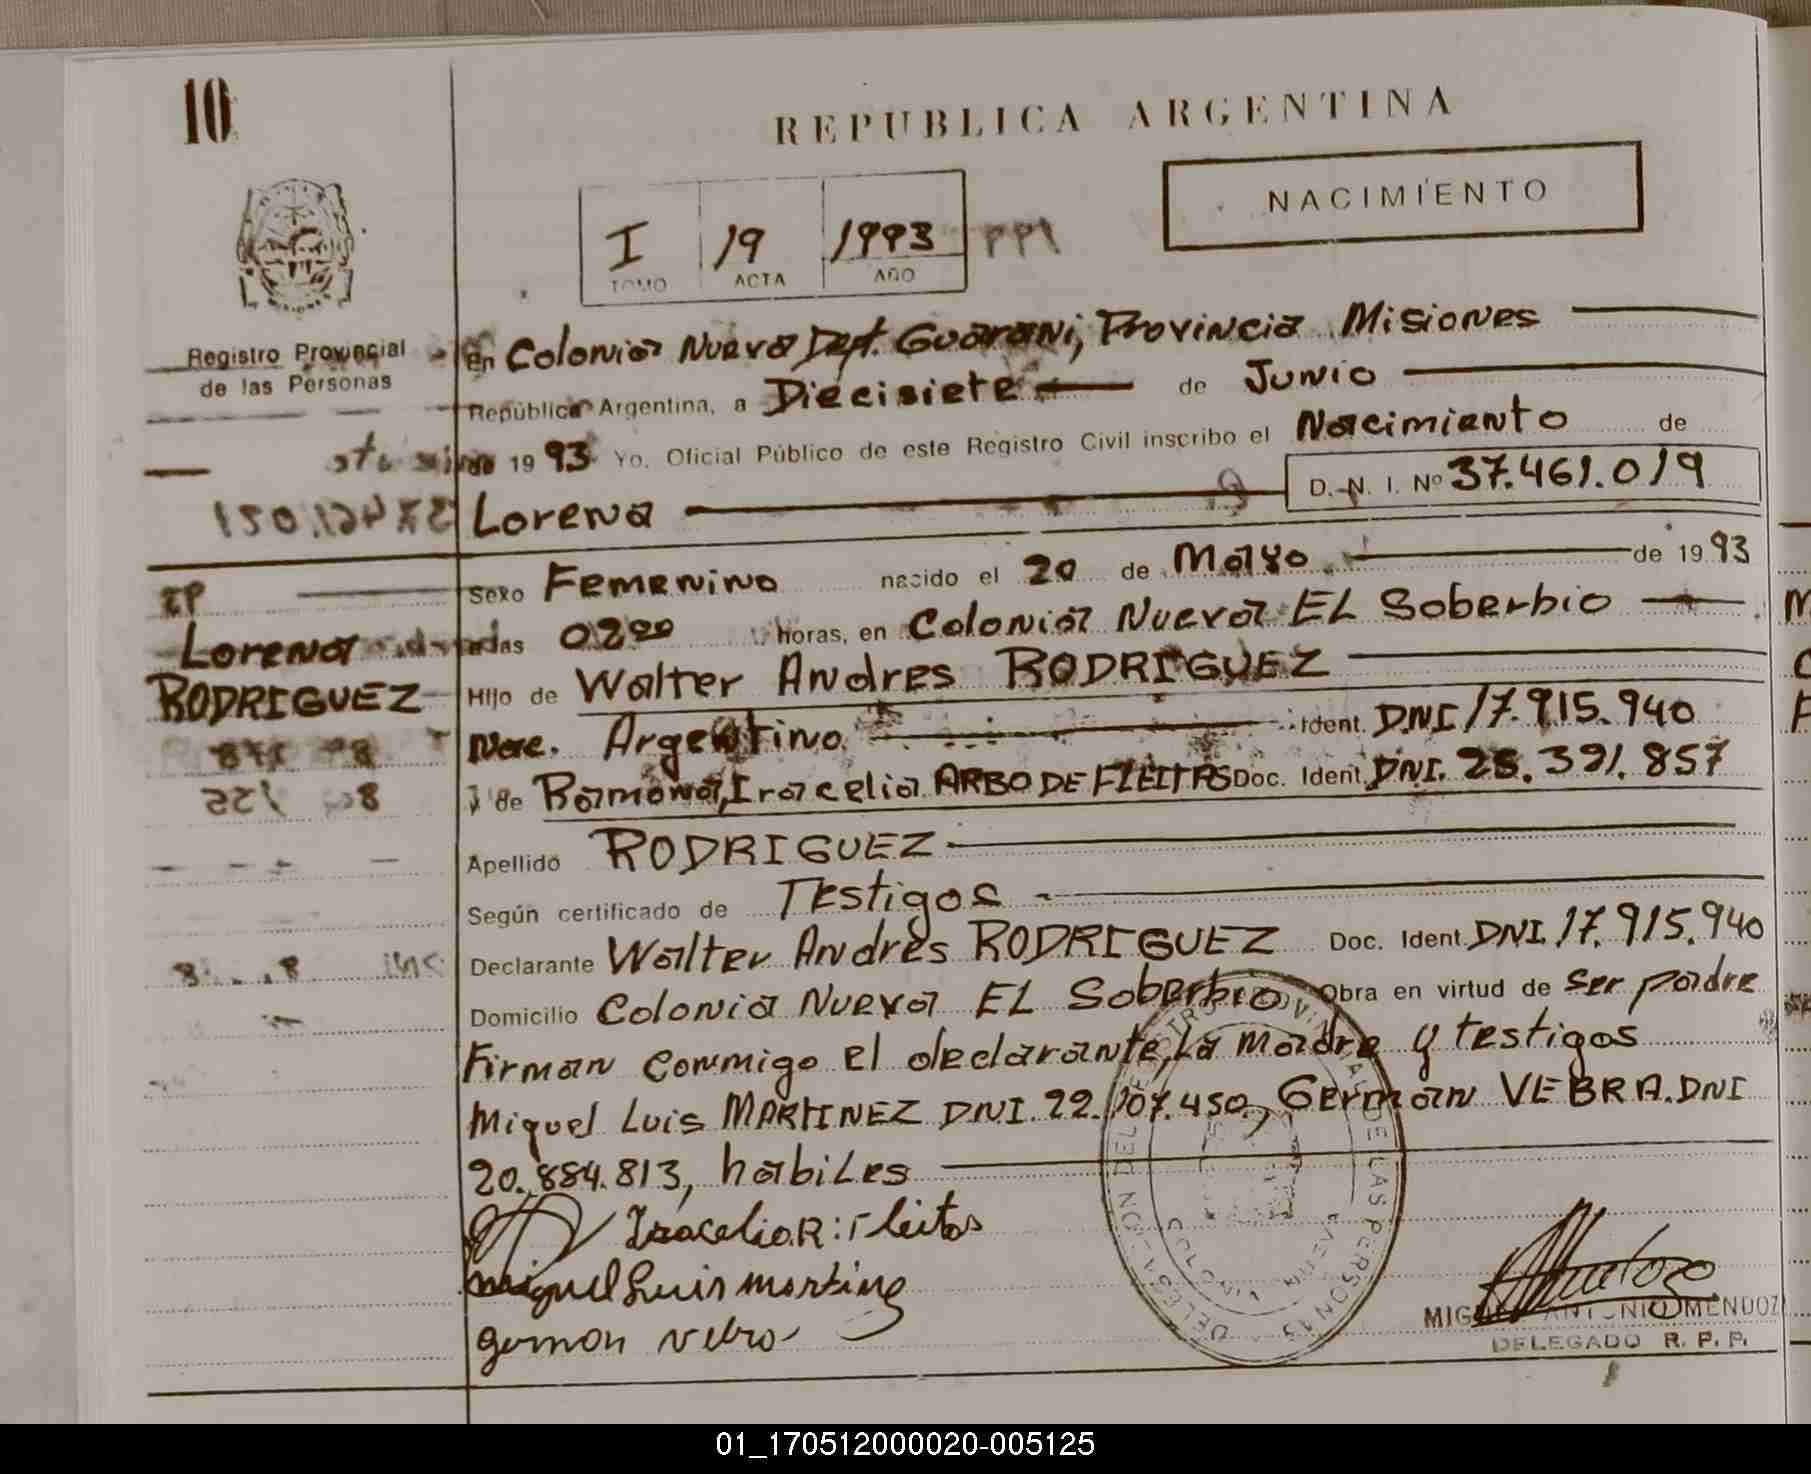 10
REPUBLICA ARGENTINA
NACIMIENTO
I 19 1993
TOMO ACTA AÑO
Registro Provincial
de las Personas
En Colonia Nueva Dept. Guarani, Provincia Misiones
República Argentina, a Diecisiete de Junio
de 1993 Yo, Oficial Público de este Registro Civil inscribo el Nacimiento de
D. N. I. Nº 37.461.019
Lorena
Sexo Femenino nacido el 20 de Mayo de 1993
a las 02 00 horas, en Colonia Nueva EL Soberbio
Lorena
RODRIGUEZ
Hijo de Walter Andres RODRIGUEZ
Nac. Argentino Ident. DNI 17.915.940
y de Ramona Iracelia ARBO DE FLEITAS Doc. Ident. DNI. 25.391.857
Apellido RODRIGUEZ
Según certificado de Testigos
Declarante Walter Andres RODRIGUEZ Doc. Ident. DNI. 17.915.940
Domicilio Colonia Nueva EL Soberbio Obra en virtud de ser padre
Firman conmigo el declarante, La madre y testigos
Miguel Luis MARTINEZ DNI. 22.107.450, German VEBRA. DNI
20.884.813, habiles
Iracelia R: Fleitas
miguel Luis martinez
german vebra
DELEGACION DEL REGISTRO PROVINCIAL DE LAS PERSONAS
MIGUEL ANTONIO MENDOZ
DELEGADO R. P. P.
01_170512000020-005125